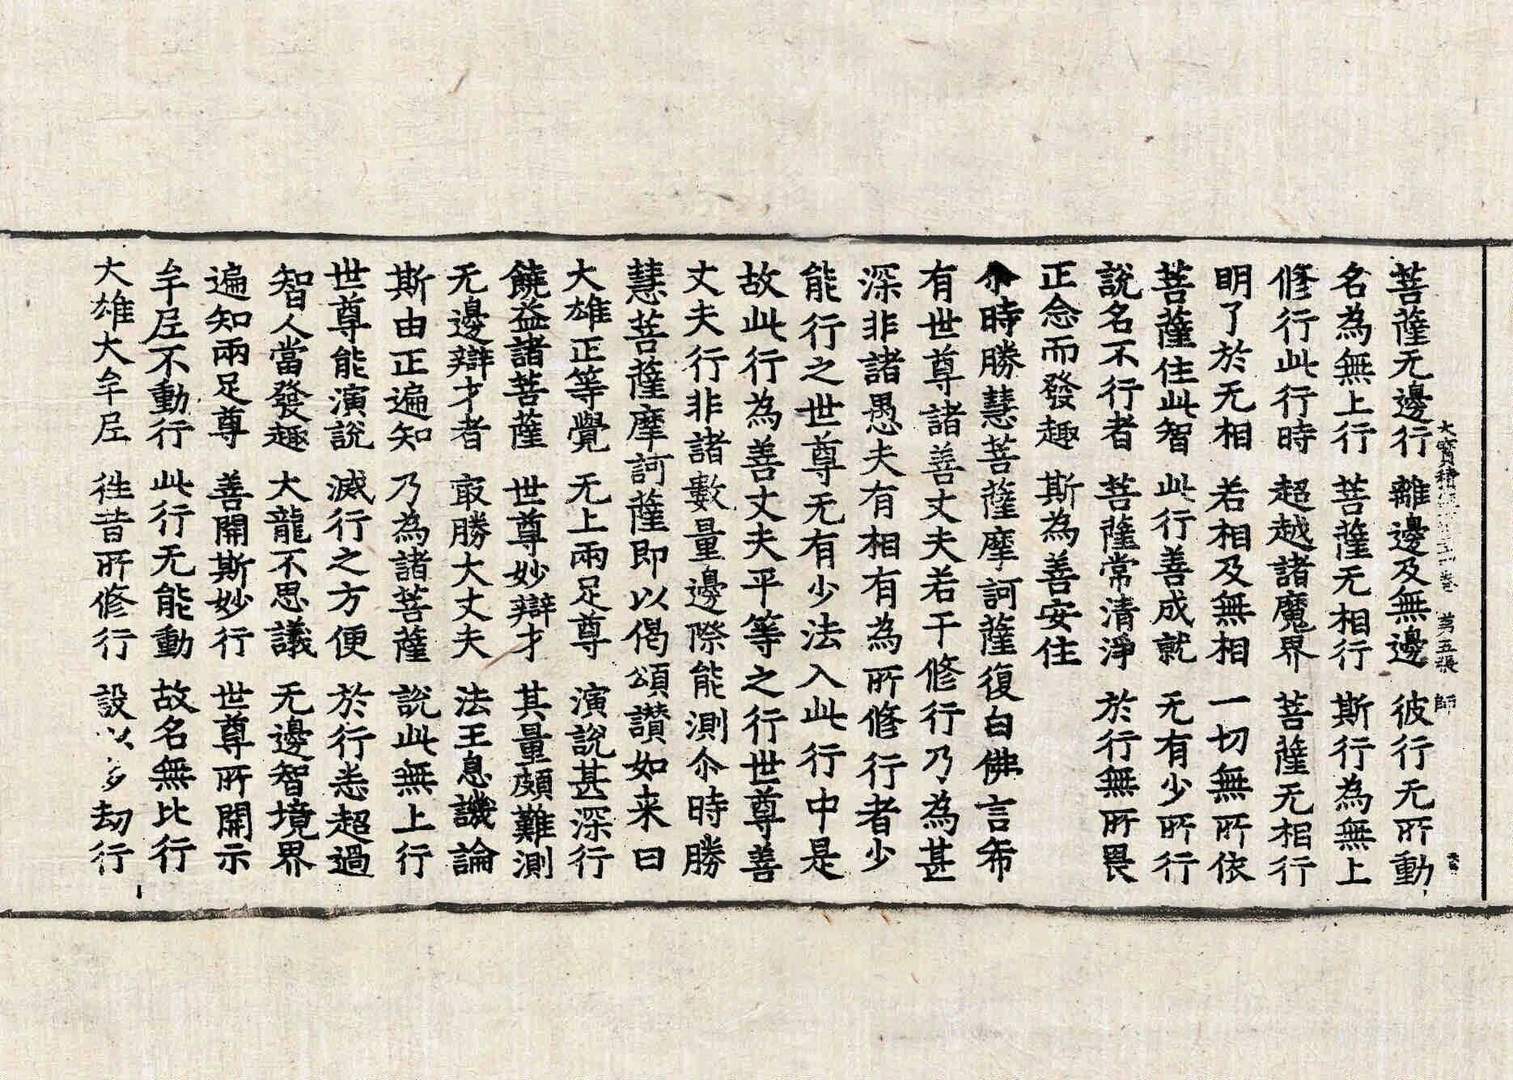 大寶積經 卷 第五張 師
菩薩无邊行 離邊及無邊 彼行无所動
名為無上行 菩薩无相行 斯行為無上
修行此行時 超越諸魔界 菩薩无相行
明了於无相 若相及無相 一切無所依
菩薩住此智 此行善成就 无有少所行
說名不行者 菩薩常清淨 於行無所畏
正念而發趣 斯為善安住
尒時勝慧菩薩摩訶薩復白佛言希
有世尊諸善丈夫若干修行乃為甚
深非諸愚夫有相有為所修行者少
能行之世尊无有少法入此行中是
故此行為善丈夫平等之行世尊善
丈夫行非諸數量邊際能測尒時勝
慧菩薩摩訶薩即以偈頌讃如来曰
大雄正等覺 无上兩足尊 演說甚深行
饒益諸菩薩 世尊妙辯才 其量頗難測
无邊辯才者 㝡勝大丈夫 法王息譏論
斯由正遍知 乃為諸菩薩 說此無上行
世尊能演說 滅行之方便 於行悉超過
智人當發趣 大龍不思議 无邊智境界
遍知兩足尊 善開斯妙行 世尊所開示
牟𡰱不動行 此行无能動 故名無比行
大雄大牟𡰱 徃昔所修行 設以多劫行